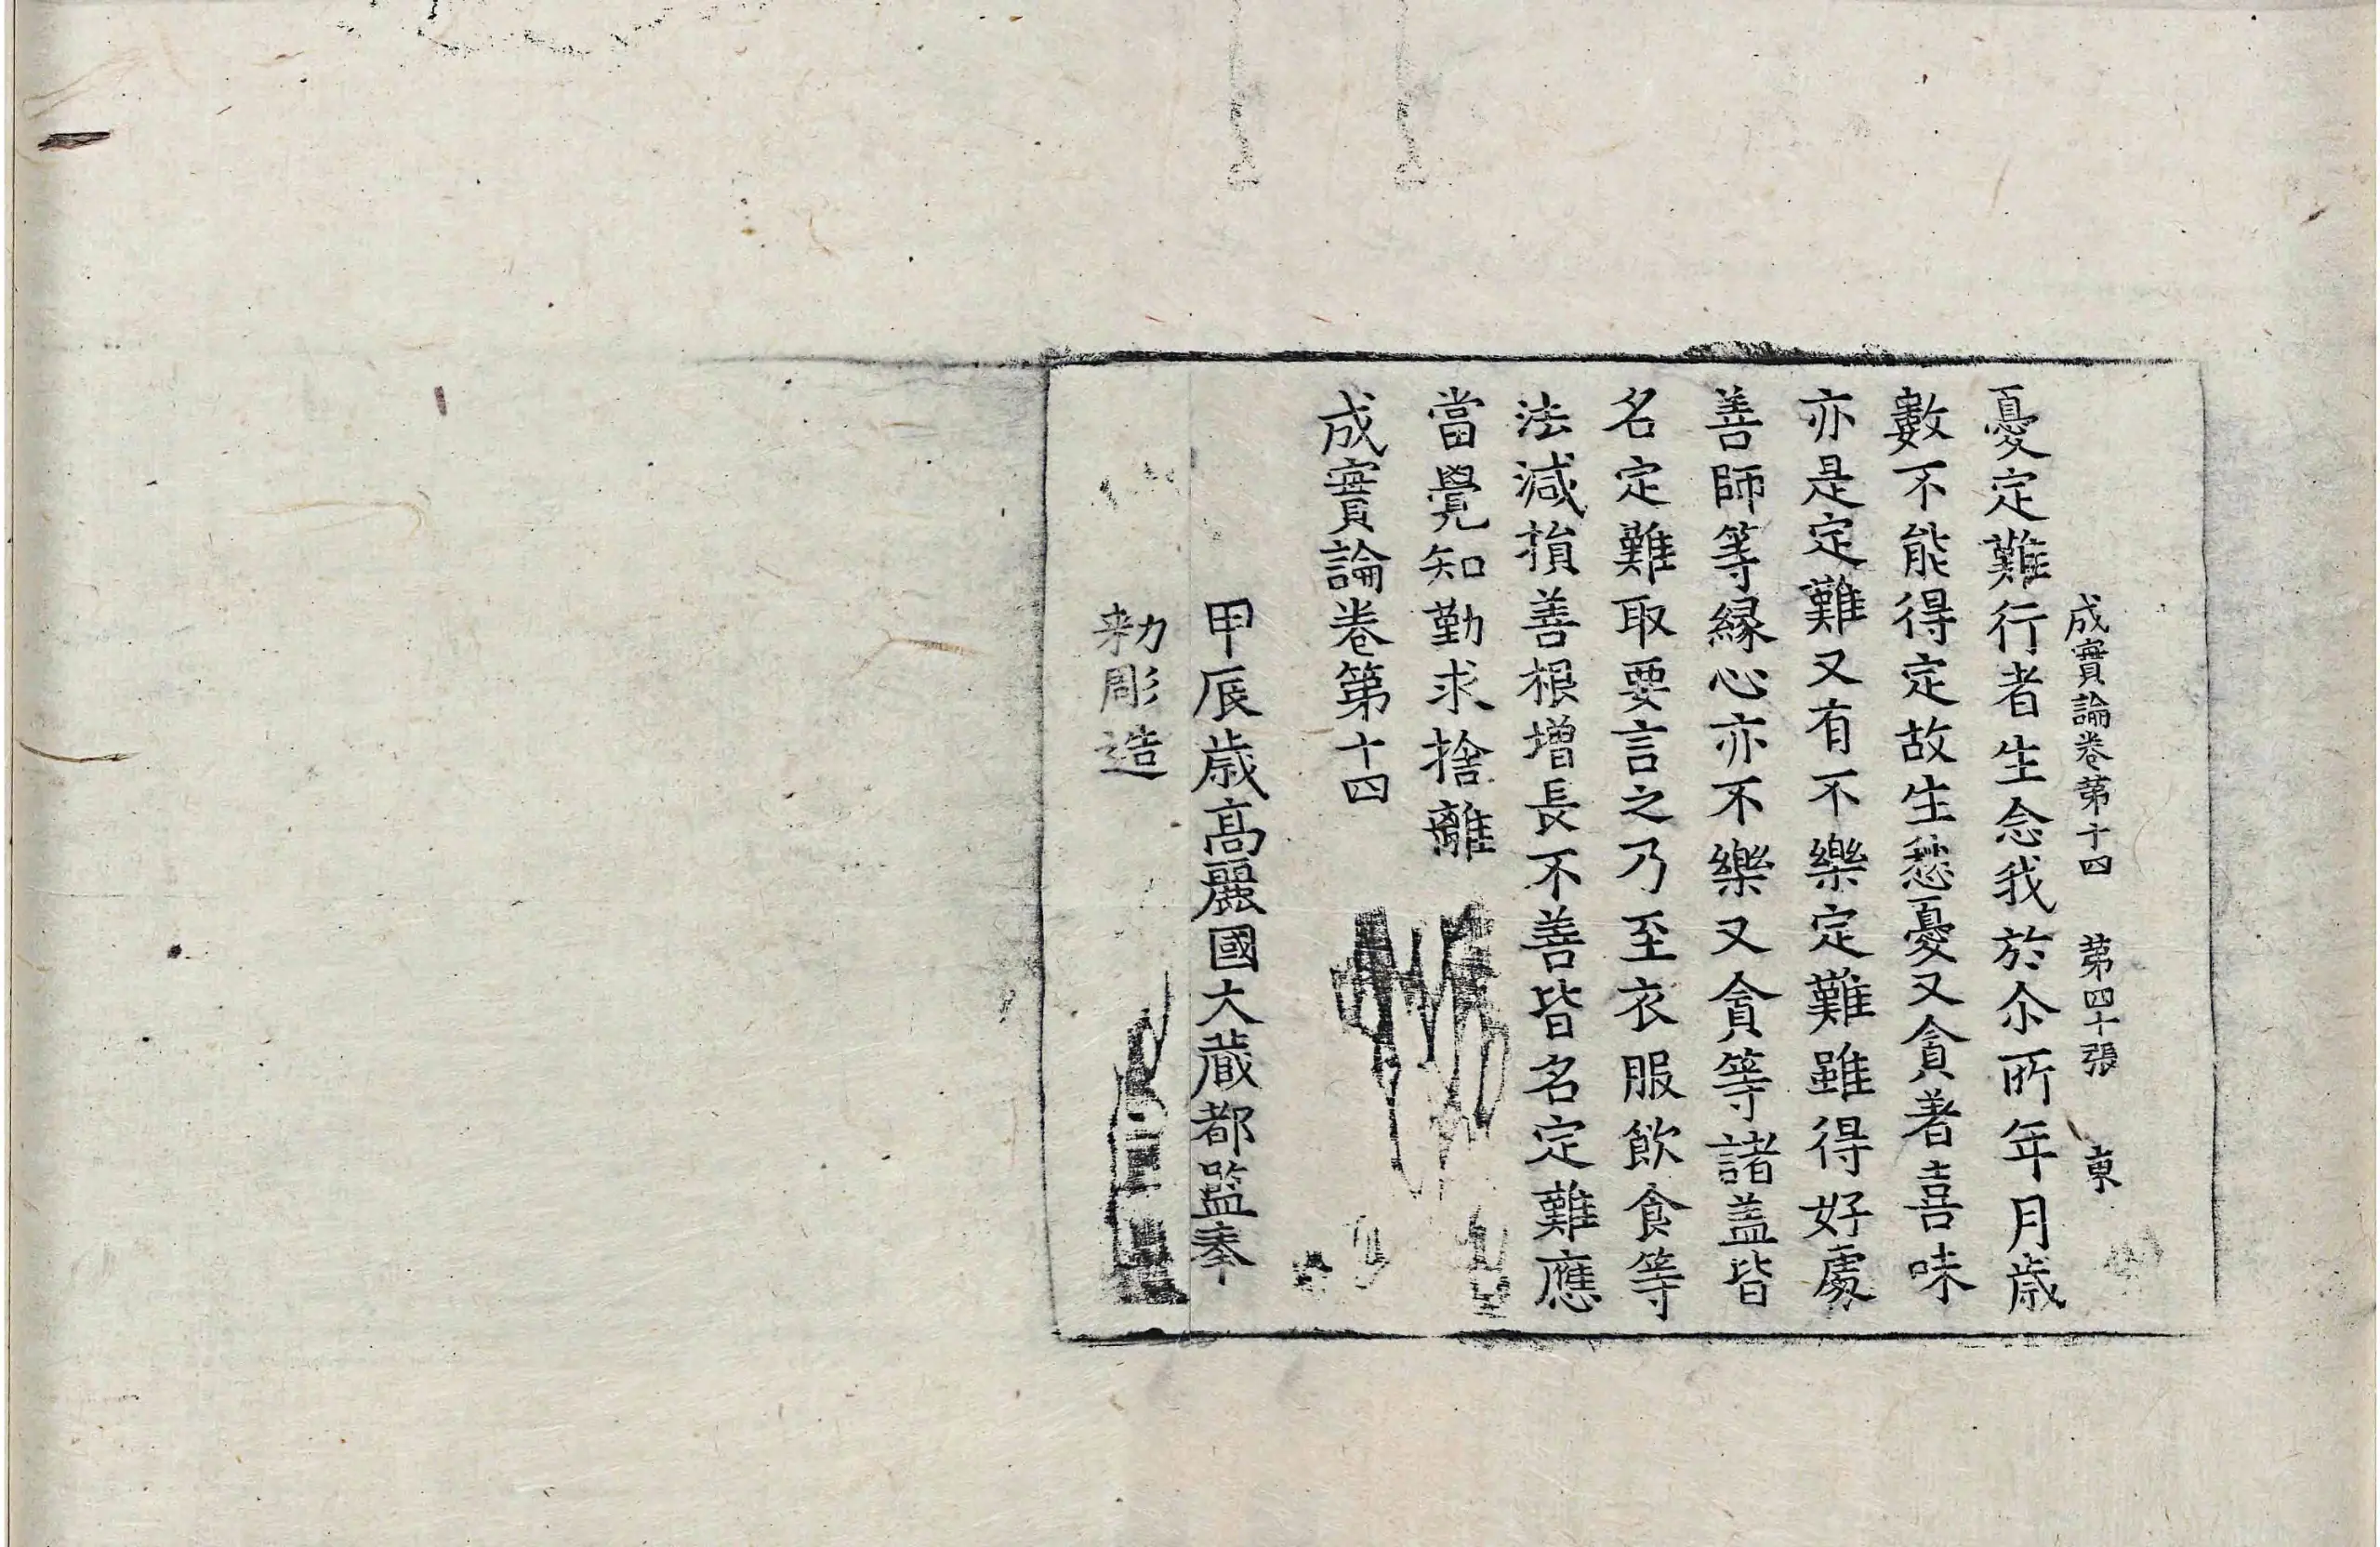 成實論卷第十四　第四十張　東
憂定難行者生念我於尒所年月歲
數不能得定故生愁憂又貪著喜味
亦是定難又有不樂定難雖得好處
善師等緣心亦不樂又貪等諸盖皆
名定難取要言之乃至衣服飲食等
法減損善根增長不善皆名定難應
當覺知勤求捨離
成實論卷第十四
甲辰歲高麗國大藏都監奉
勅彫造